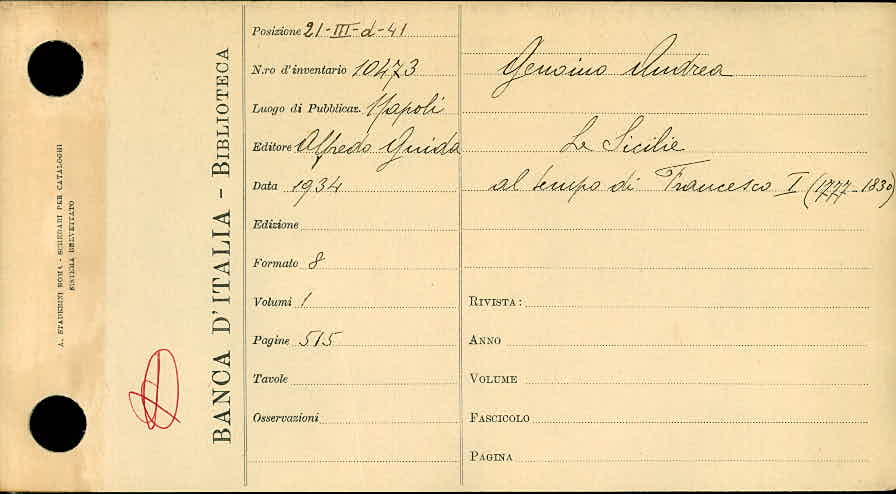 A. STADERINI ROMA - SCHEDARI PER CATALOGHI
SISTEMA BREVETTATO
BANCA D'ITALIA - BIBLIOTECA
Posizione 21-III-d-41
N.ro d'inventario 10473
Luogo di Pubblicaz. Napoli
Editore Alfredo Guida
Data 1934
Edizione
Formato 8
Volumi 1
Pagine 515
Tavole
Osservazioni
Genoino Andrea
Le Sicilie
al tempo di Francesco I (1777-1830)
RIVISTA:
ANNO
VOLUME
FASCICOLO
PAGINA